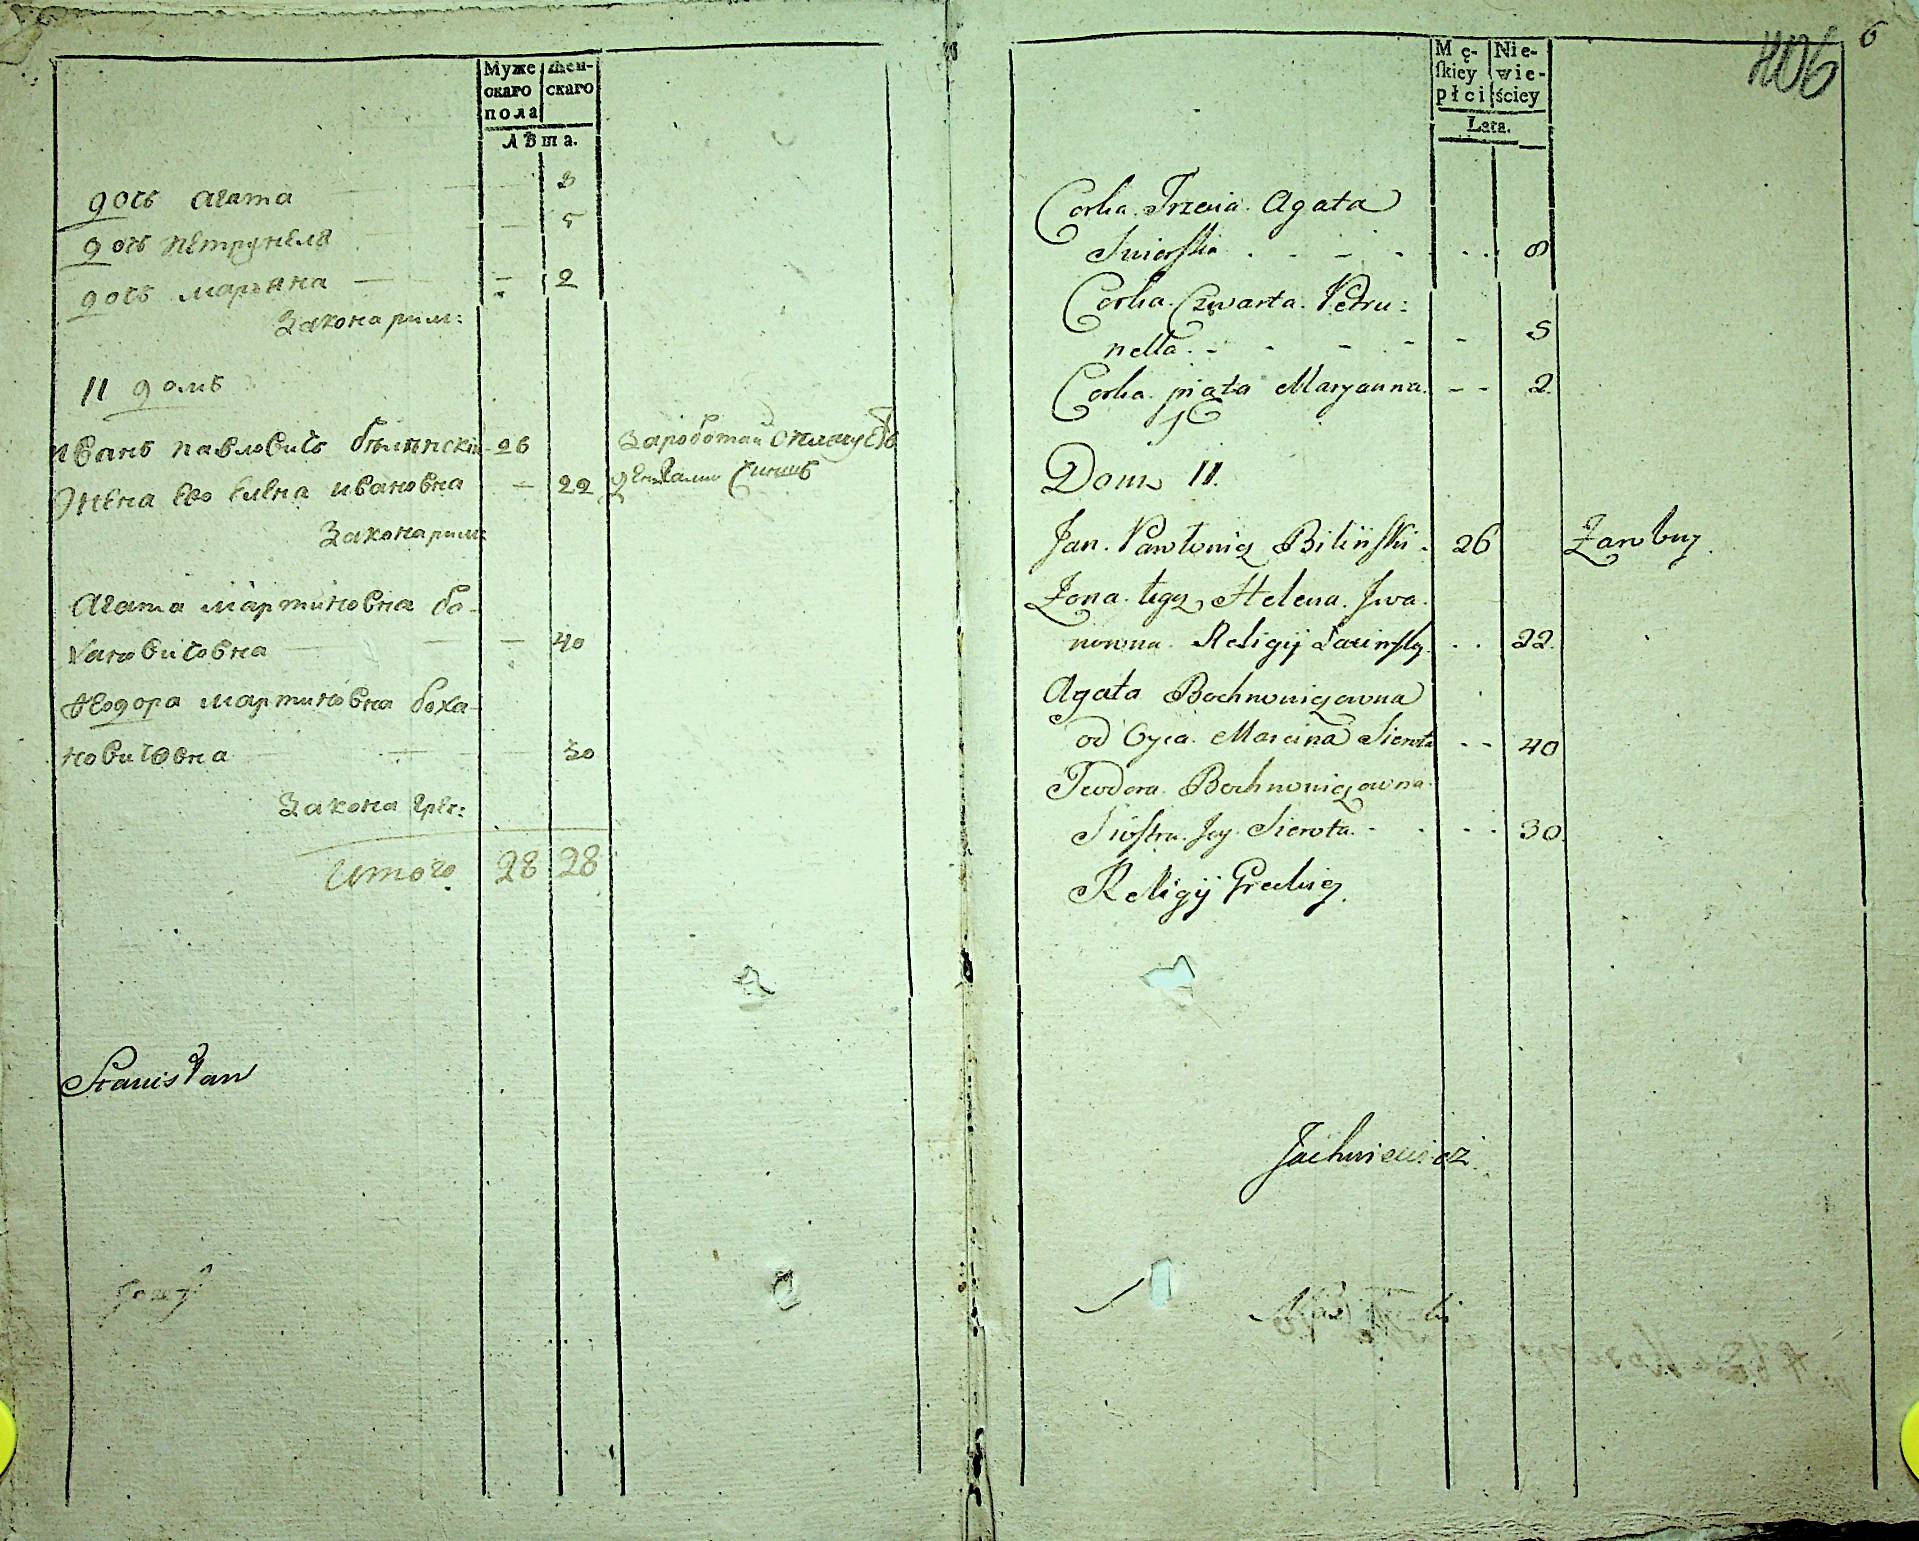 Муже
скаго
пола
Жен-
скаго
Лѣта.
дочь Агата 8
дочь Петрунеля 5
дочь Марьяна 2
Закона рим:
11 домъ
Иванъ Павловичъ Билинскій 26
Жена его Елена Ивановна 22
Закона рим:
Агата Мартиновна Бо-
хановичовна 40
Теодора Мартиновна Боха-
новичовна 30
Закона Грег:
Итого 28 28
Stanisław
Józef
406
6
Mę-
skiey
płci
Nie-
wie-
ściey
Lata.
Corka Trzecia Agata
8
Corka Czwarta Petru:
nella 5
Corka piąta Maryanna 2
Dom 11.
Jan Pawłowicz Biliński 26
Żona tegoż Helena Jwa-
nowna Religij 22
Agata Bochnowiczowna
od Oyca Marcina Sierota 40
Teodora Bochnowiczowna
Siostra Jey Sierota 30
Religij
Jachniewicz